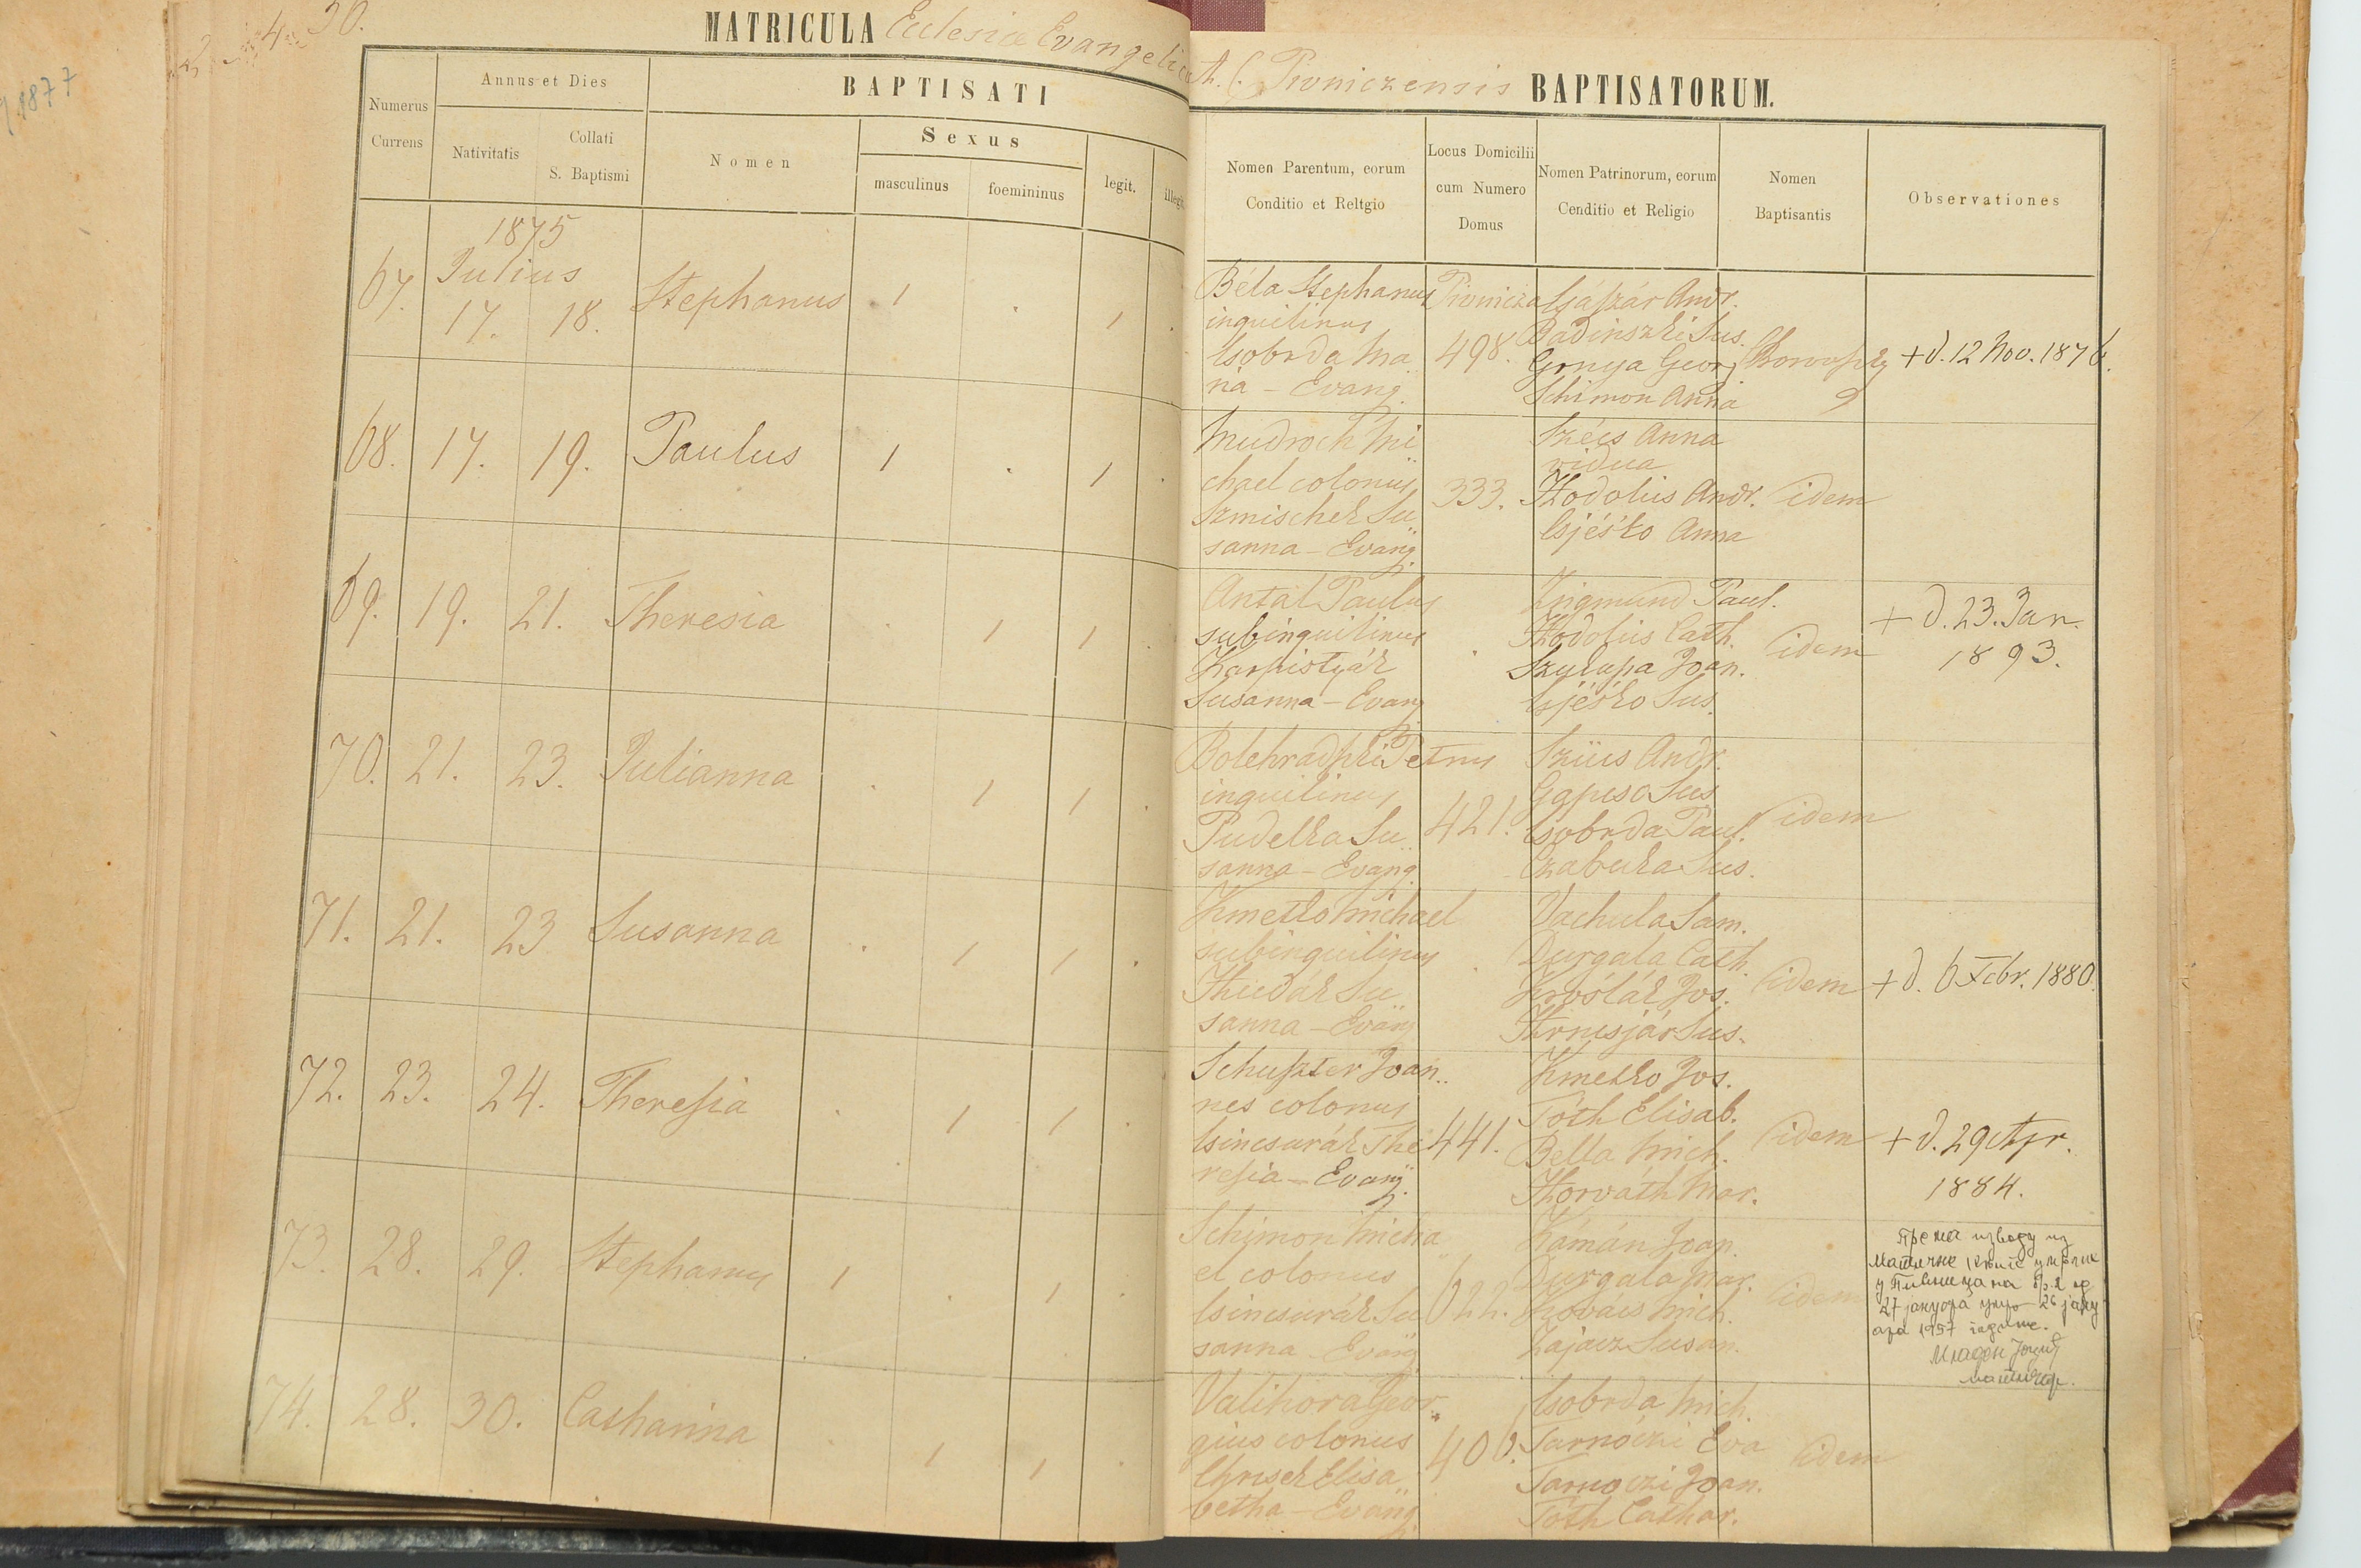 1877
30.
MATRICULA Eclesiæ Evangelicæ
A. C. Pivniczensis BAPTISATORUM.
Numerus Currens
Annus et Dies
Nativitatis
Collati S. Baptismi
BAPTISATI
Nomen
Sexus
masculinus
foemininus
legit.
illegit.
Nomen Parentum, eorum
Conditio et Reltgio
Locus Domicilii
cum Numero
Domus
Nomen Patrinorum, eorum
Cenditio et Religio
Nomen
Baptisantis
Observationes
1875
Julius
67. 17. 18. Stephanus 1 . 1 .
Béla Stephanus
inquilinus
Csobrda Ma
ria - Evang.
Pivnicza
498.
Gáspár Andr.
Badinszki Sus.
Grnya Georg
Schimon Anna
+ d. 12 Nov. 1876.
68. 17. 19. Paulus 1 . 1 .
Mudroch Mi
chael colonus
Szmischek Su
sanna - Evang.
333.
Szécs Anna
vidua
Hodolits Andr.
Csjésko Anna
idem
69. 19. 21. Theresia . 1 1
Antal Paulus
subinquilinus
Karkistyák
Susanna - Evang
Zsigmund Paul.
Hodolits Cath.
Szylupa Joan.
Csjésko Sus.
idem
+ d. 23. Jan.
1893.
70. 21. 23. Julianna . 1 1 .
Bolehradszki Petrus
inquilinus
Pudelka Su
sanna - Evang.
421.
Szücs Andr.
Gapcso Sus
Csobrda Paul.
Czabuka Sus.
idem
71. 21. 23 Susanna . 1 1 .
Kmetko Michael
subinquilinus
Chudák Su
sanna - Evang
Vachula Sam.
Durgala Cath.
Kroslák Jos.
Hrncsjár Sus.
idem
+ d. 6 Febr. 1880.
72. 23. 24. Theresia . 1 1 .
Schuszter Joan
nes colonus
Csincsurák The
resia - Evang.
441.
Kmetko Jos.
Tóth Elisab.
Bella Mich.
Horváth Mar.
idem
+ d. 29 Apr.
1884.
73. 28. 29. Stephanus 1 . 1 .
Schimon Micha
el colonus
Csincsurák Su
sanna Evang
622.
Kámán Joan.
Durgala Mar.
Kovács Mich.
Zajacz Susan.
idem
Према изводу из
Матичне књиге умрлих
у Пивницама бр. 2 од
27 јануара умро 26 јану
ара 1957 године.
Младен
матичар.
74. 28. 30. Catharina . 1 1 .
Valihora Geor
gius colonus
Chrisck Elisa
betha - Evang
406.
Csobrda Mich.
Tarnóczi Eva
Tarnoczi Joan.
Tóth Cathar.
idem